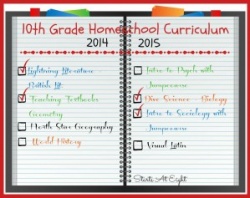 10th Grade Homeschool Curriculum
2014
2015
Lightning Literature
British Lit
Teaching Textbooks
Geometry
North Star Geography
World History
Intro to Psych with
Jumpstone
Duo Science - Biology
Intro to Sociology with
Visual Latin
Starts At Eight